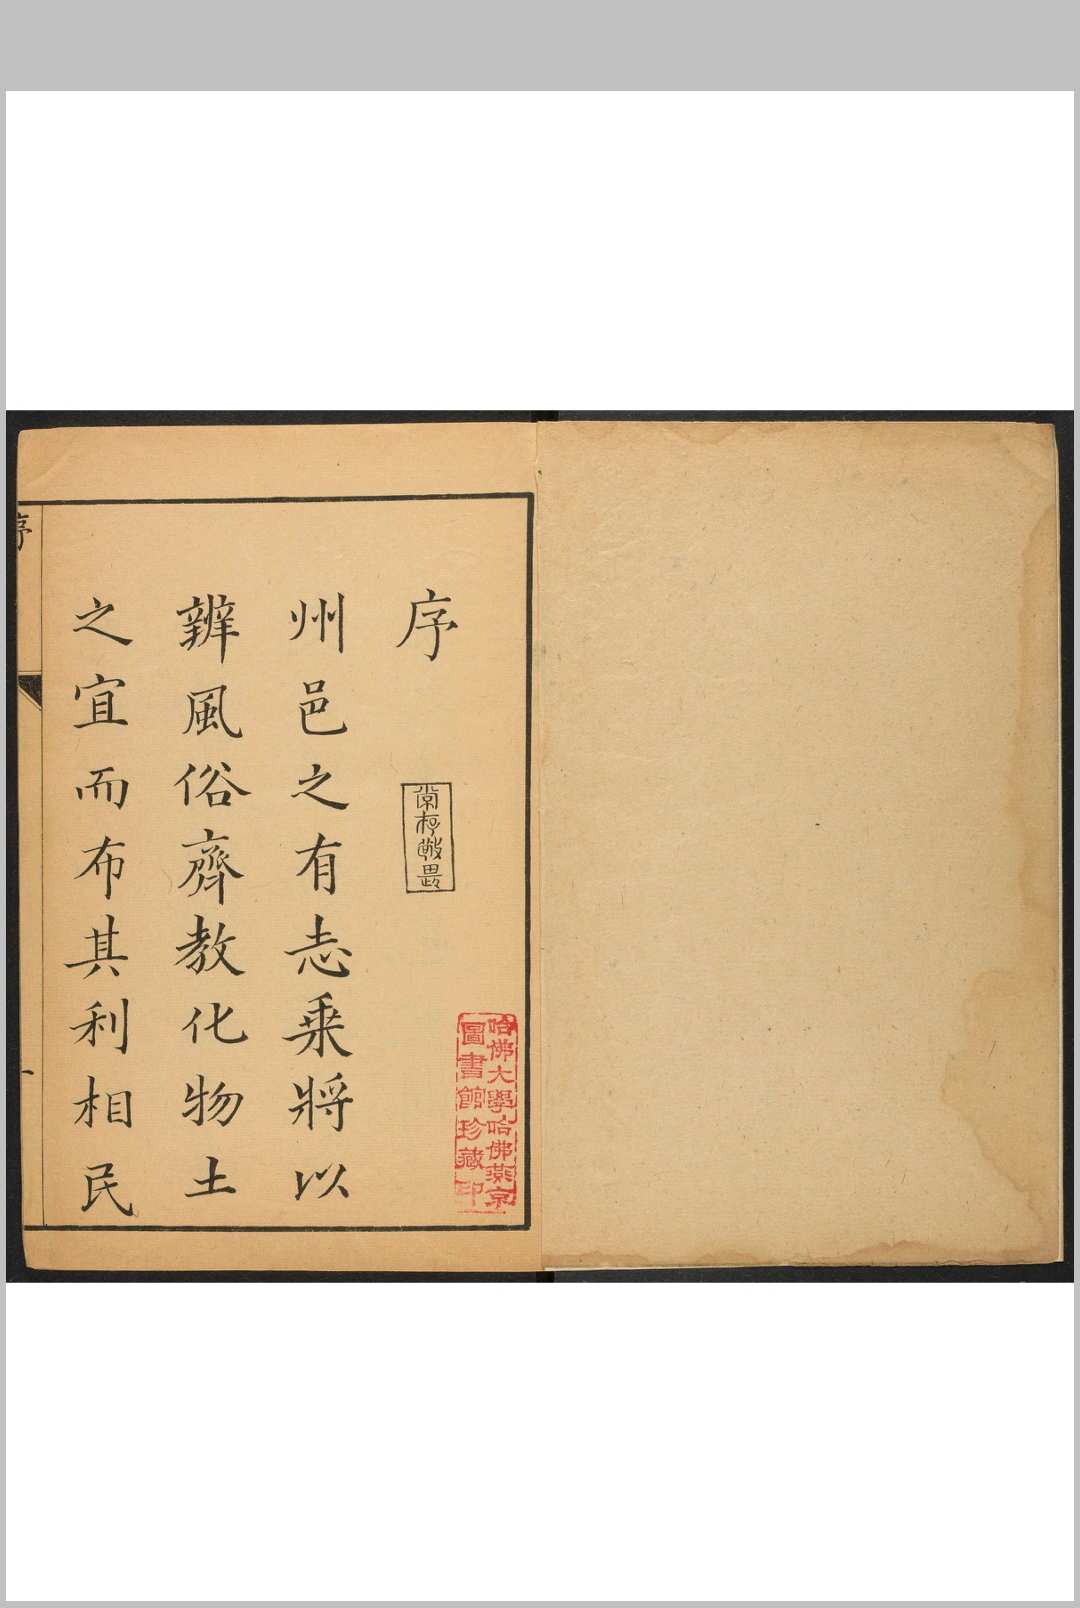 序
常存敬畏
哈佛大學哈佛燕京
圖書館珍藏印
州邑之有志乗將以
辨風俗齊教化物土
之宜而布其利相民
序
一